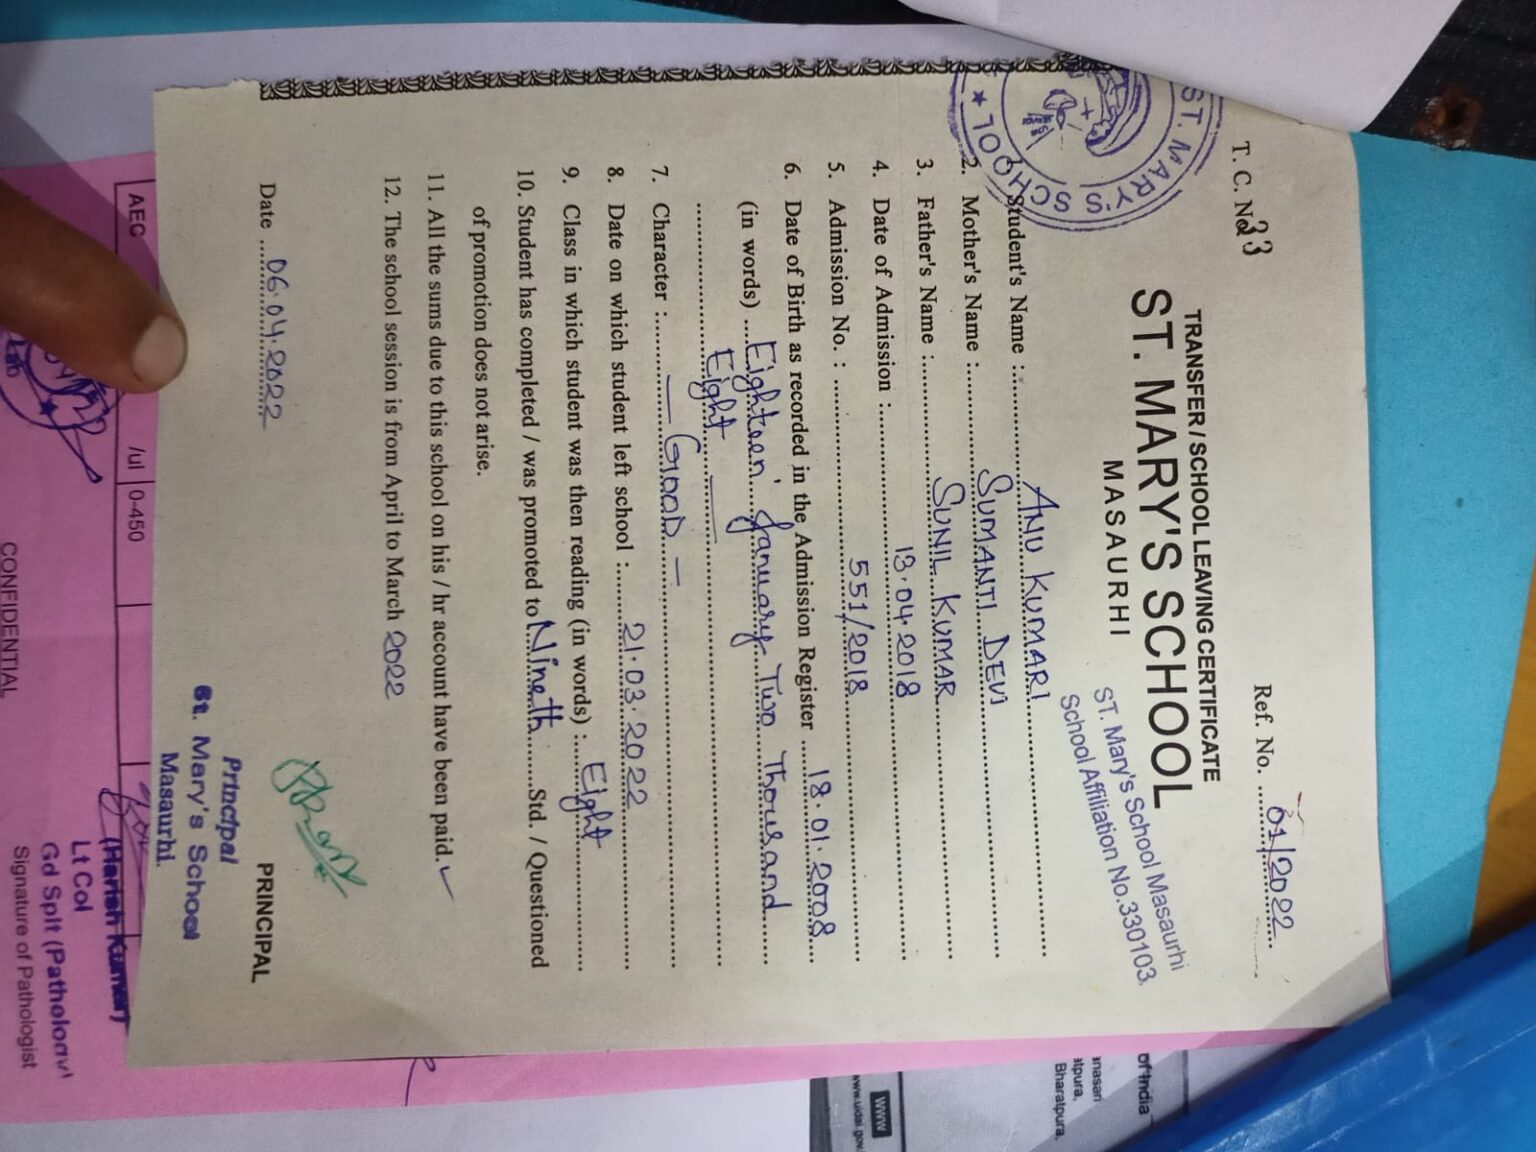 T. C. No 33
Ref. No. 01/2022
TRANSFER / SCHOOL LEAVING CERTIFICATE
ST. MARY'S SCHOOL
MASAURHI
ST. MARY'S SCHOOL
ST. Mary's School Masaurhi
School Affiliation No.330103
1. Student's Name : ANU KUMARI
2. Mother's Name : SUMANTI DEVI
3. Father's Name : SUNIL KUMAR
4. Date of Admission : 13.04.2018
5. Admission No. : 551/2018
6. Date of Birth as recorded in the Admission Register 18.01.2008
(in words) Eighteen January Two Thousand
Eight
7. Character : GOOD
8. Date on which student left school : 21.03.2022
9. Class in which student was then reading (in words) : Eight
10. Student has completed / was promoted to Nineth Std. / Questioned
of promotion does not arise.
11. All the sums due to this school on his / hr account have been paid.
12. The school session is from April to March 2022
Date 06.04.2022
PRINCIPAL
Principal
St. Mary's School
Masaurhi.
AEC
/ul
0-450
Lab
CONFIDENTIAL
(Harish Kumar)
Lt Col
Gd Splt (Pathology)
Signature of Pathologist
of India
anasari
Bharatpura,
www
www.uidai.gov.